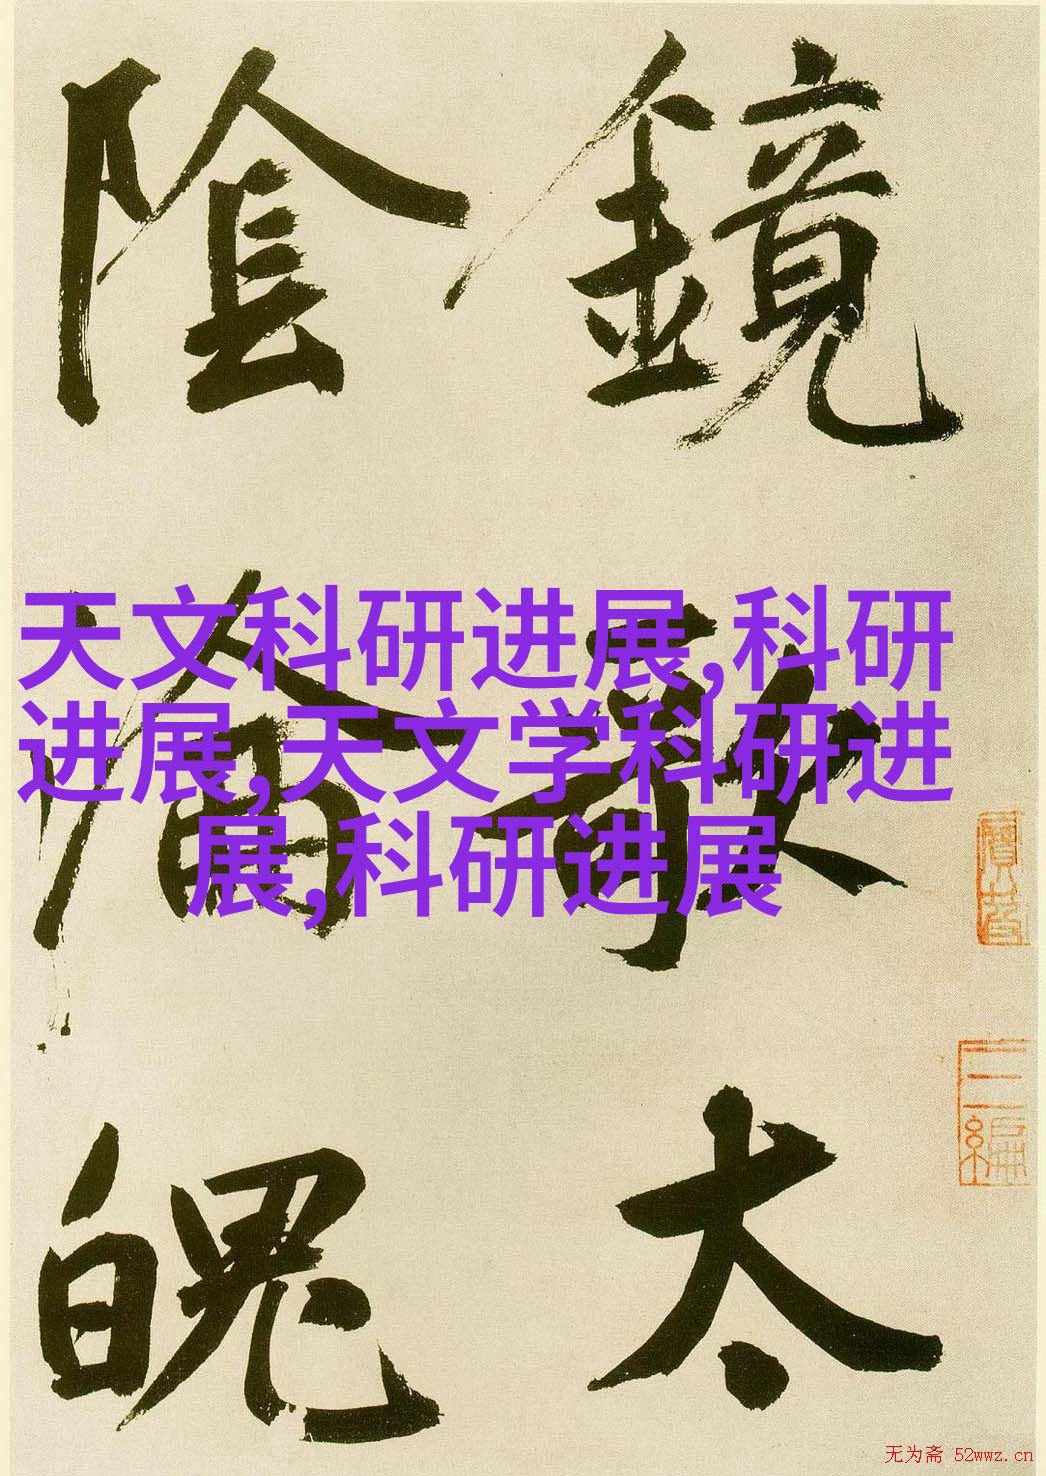 鏡
太
陰
魄
天文科研进展,科研
进展,天文学科研进
展,科研进展
三編
无为斋 52wwz.cn